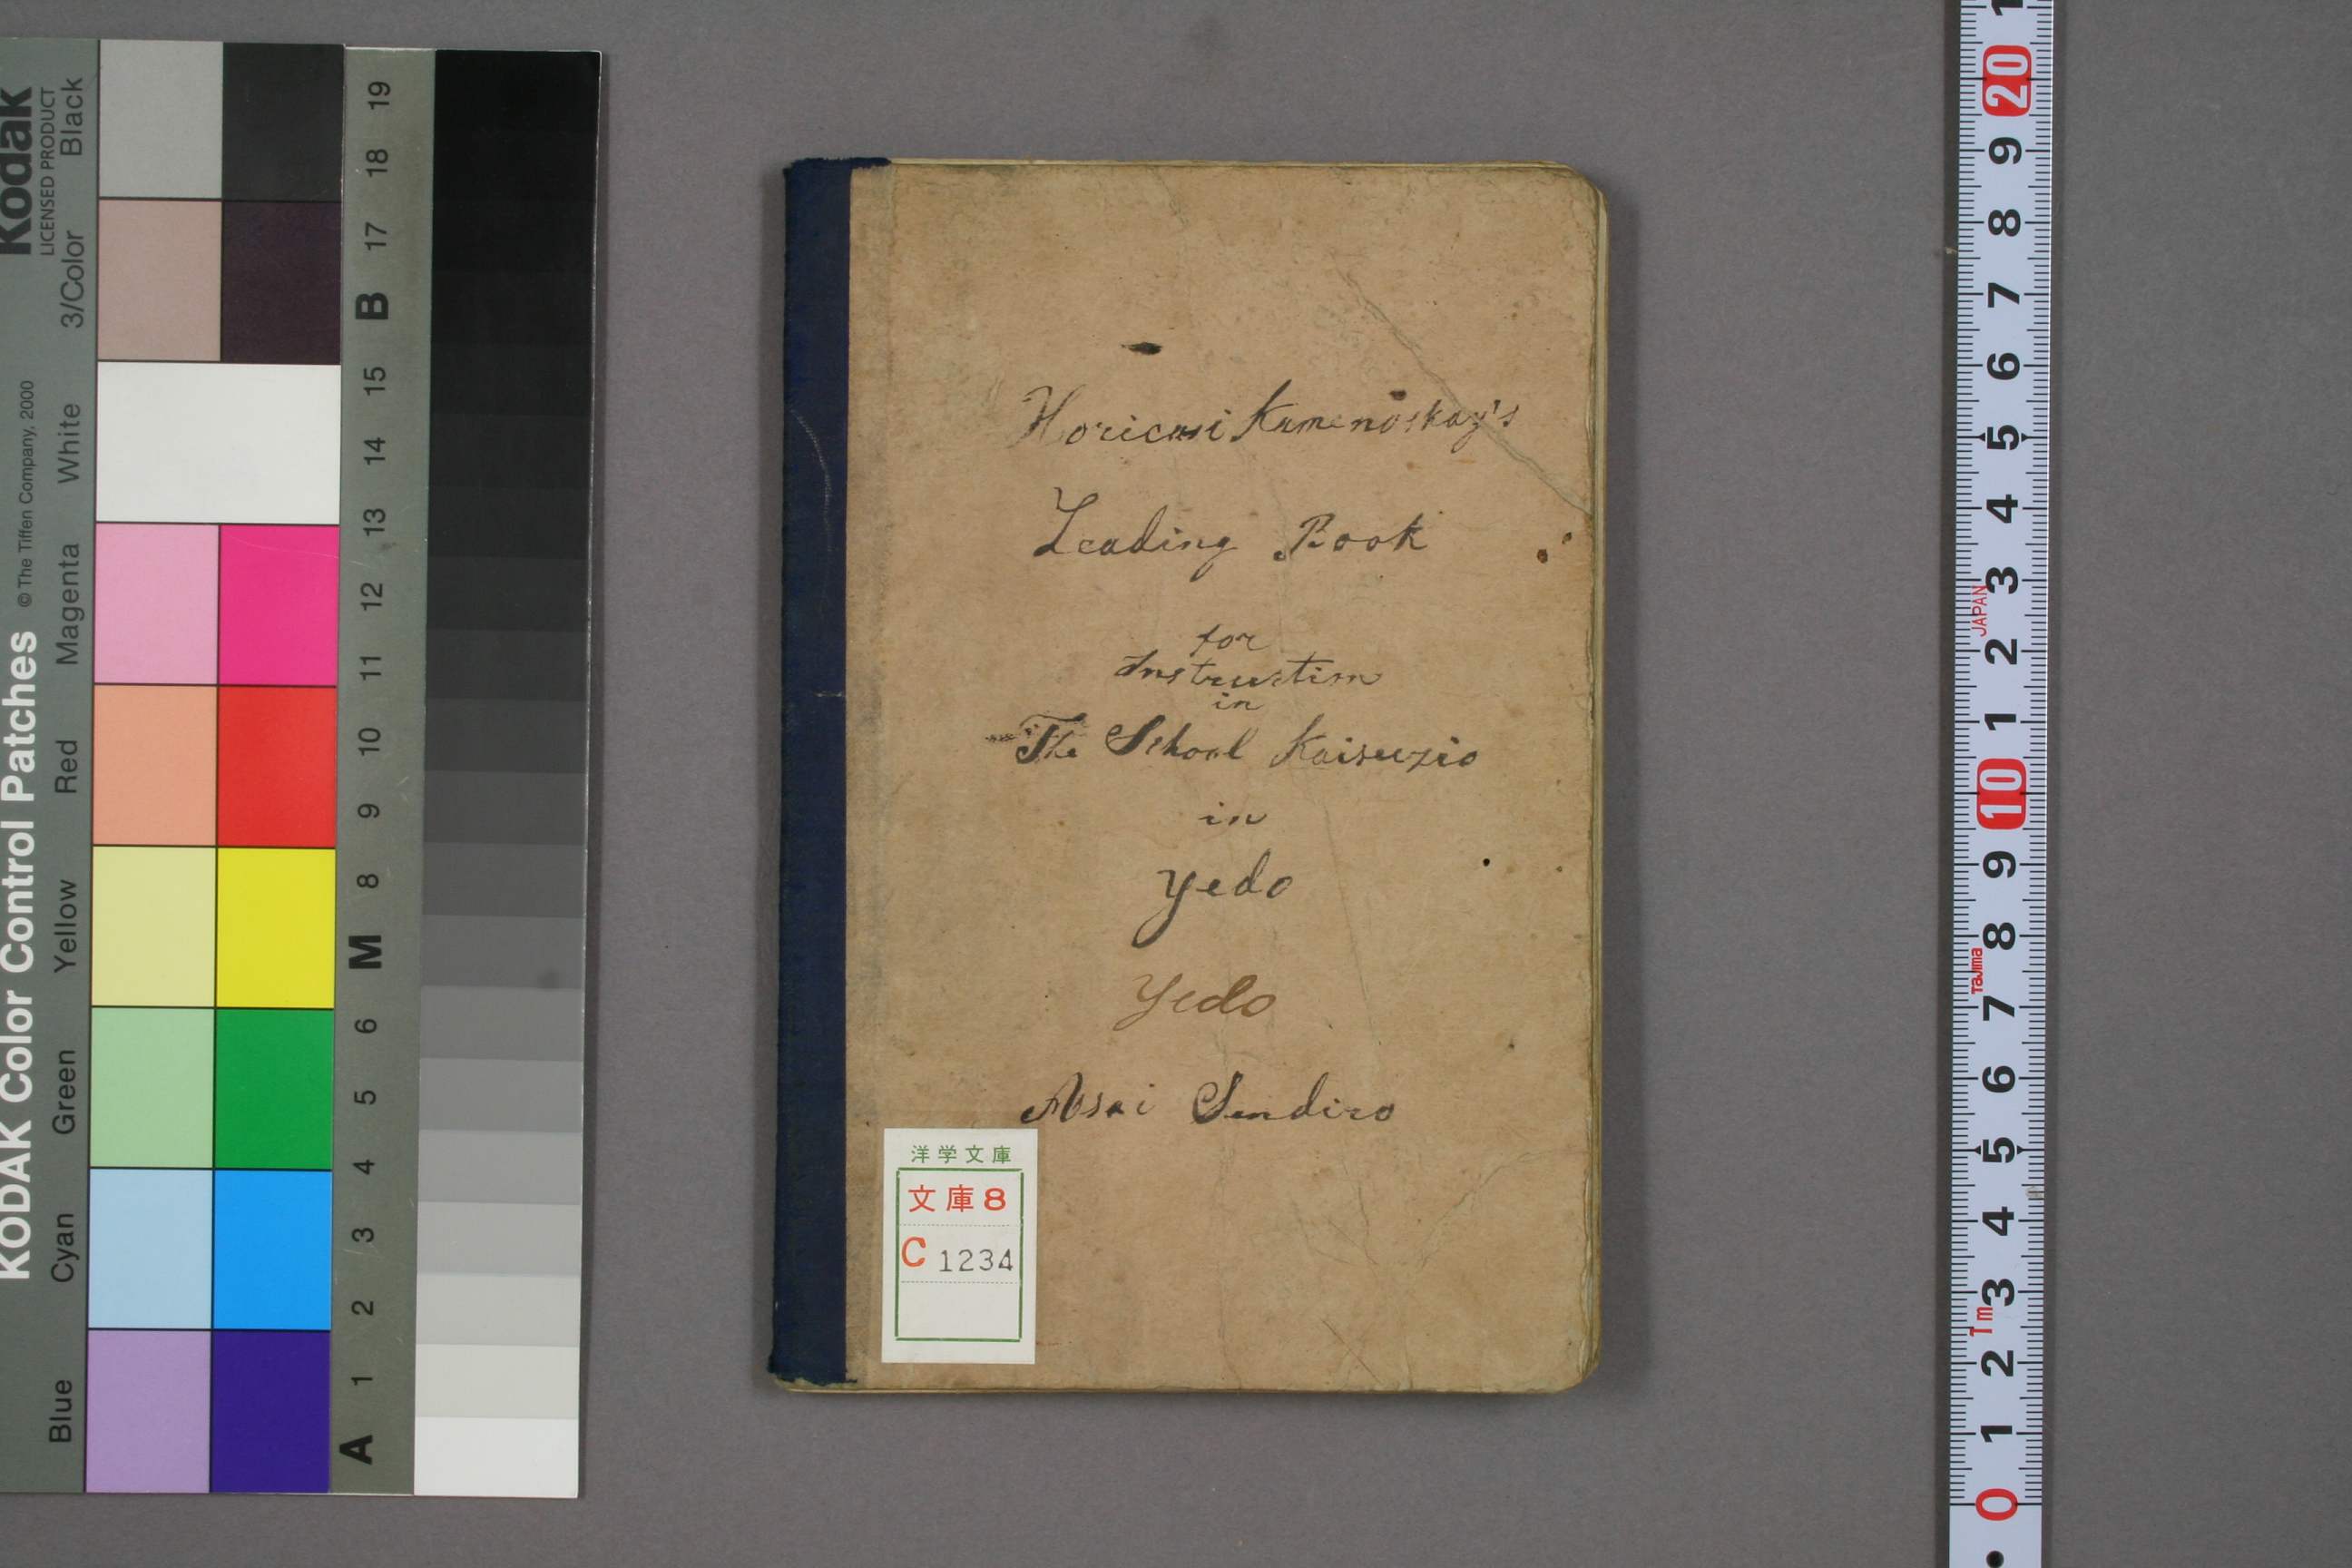 Horicasi Kamenoskay's
Leading Book
for
Instruction
in
The School Kaiseuzio
in
Yedo
Yedo
Asai Sendiro
洋学文庫
文庫8
C 1234
KODAK Color Control Patches © The Tiffen Company, 2000
Kodak
LICENSED PRODUCT
Blue Cyan Green Yellow Red Magenta White 3/Color Black
A 1 2 3 4 5 6 M 8 9 10 11 12 13 14 15 B 17 18 19
1 20 9 8 7 6 5 4 3 2 1 10 9 8 7 6 5 4 3 2 1 0
JAPAN
Tajima
1m